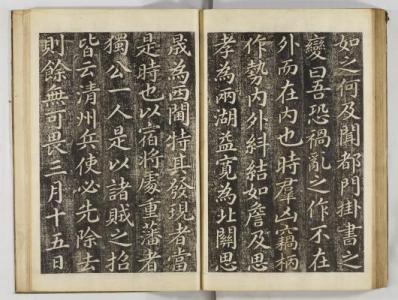 如之何及聞都門掛書之
變曰吾恐禍亂之作不在
外而在內也時羣凶竊柄
作勢內外糾結如詹及思
孝為兩湖益寬為北關思
晟為西閫特其發現者當
是時也以宿將處重藩者
獨公一人是以諸賊之招
皆云清州兵使必先除去
則餘無可畏三月十五日